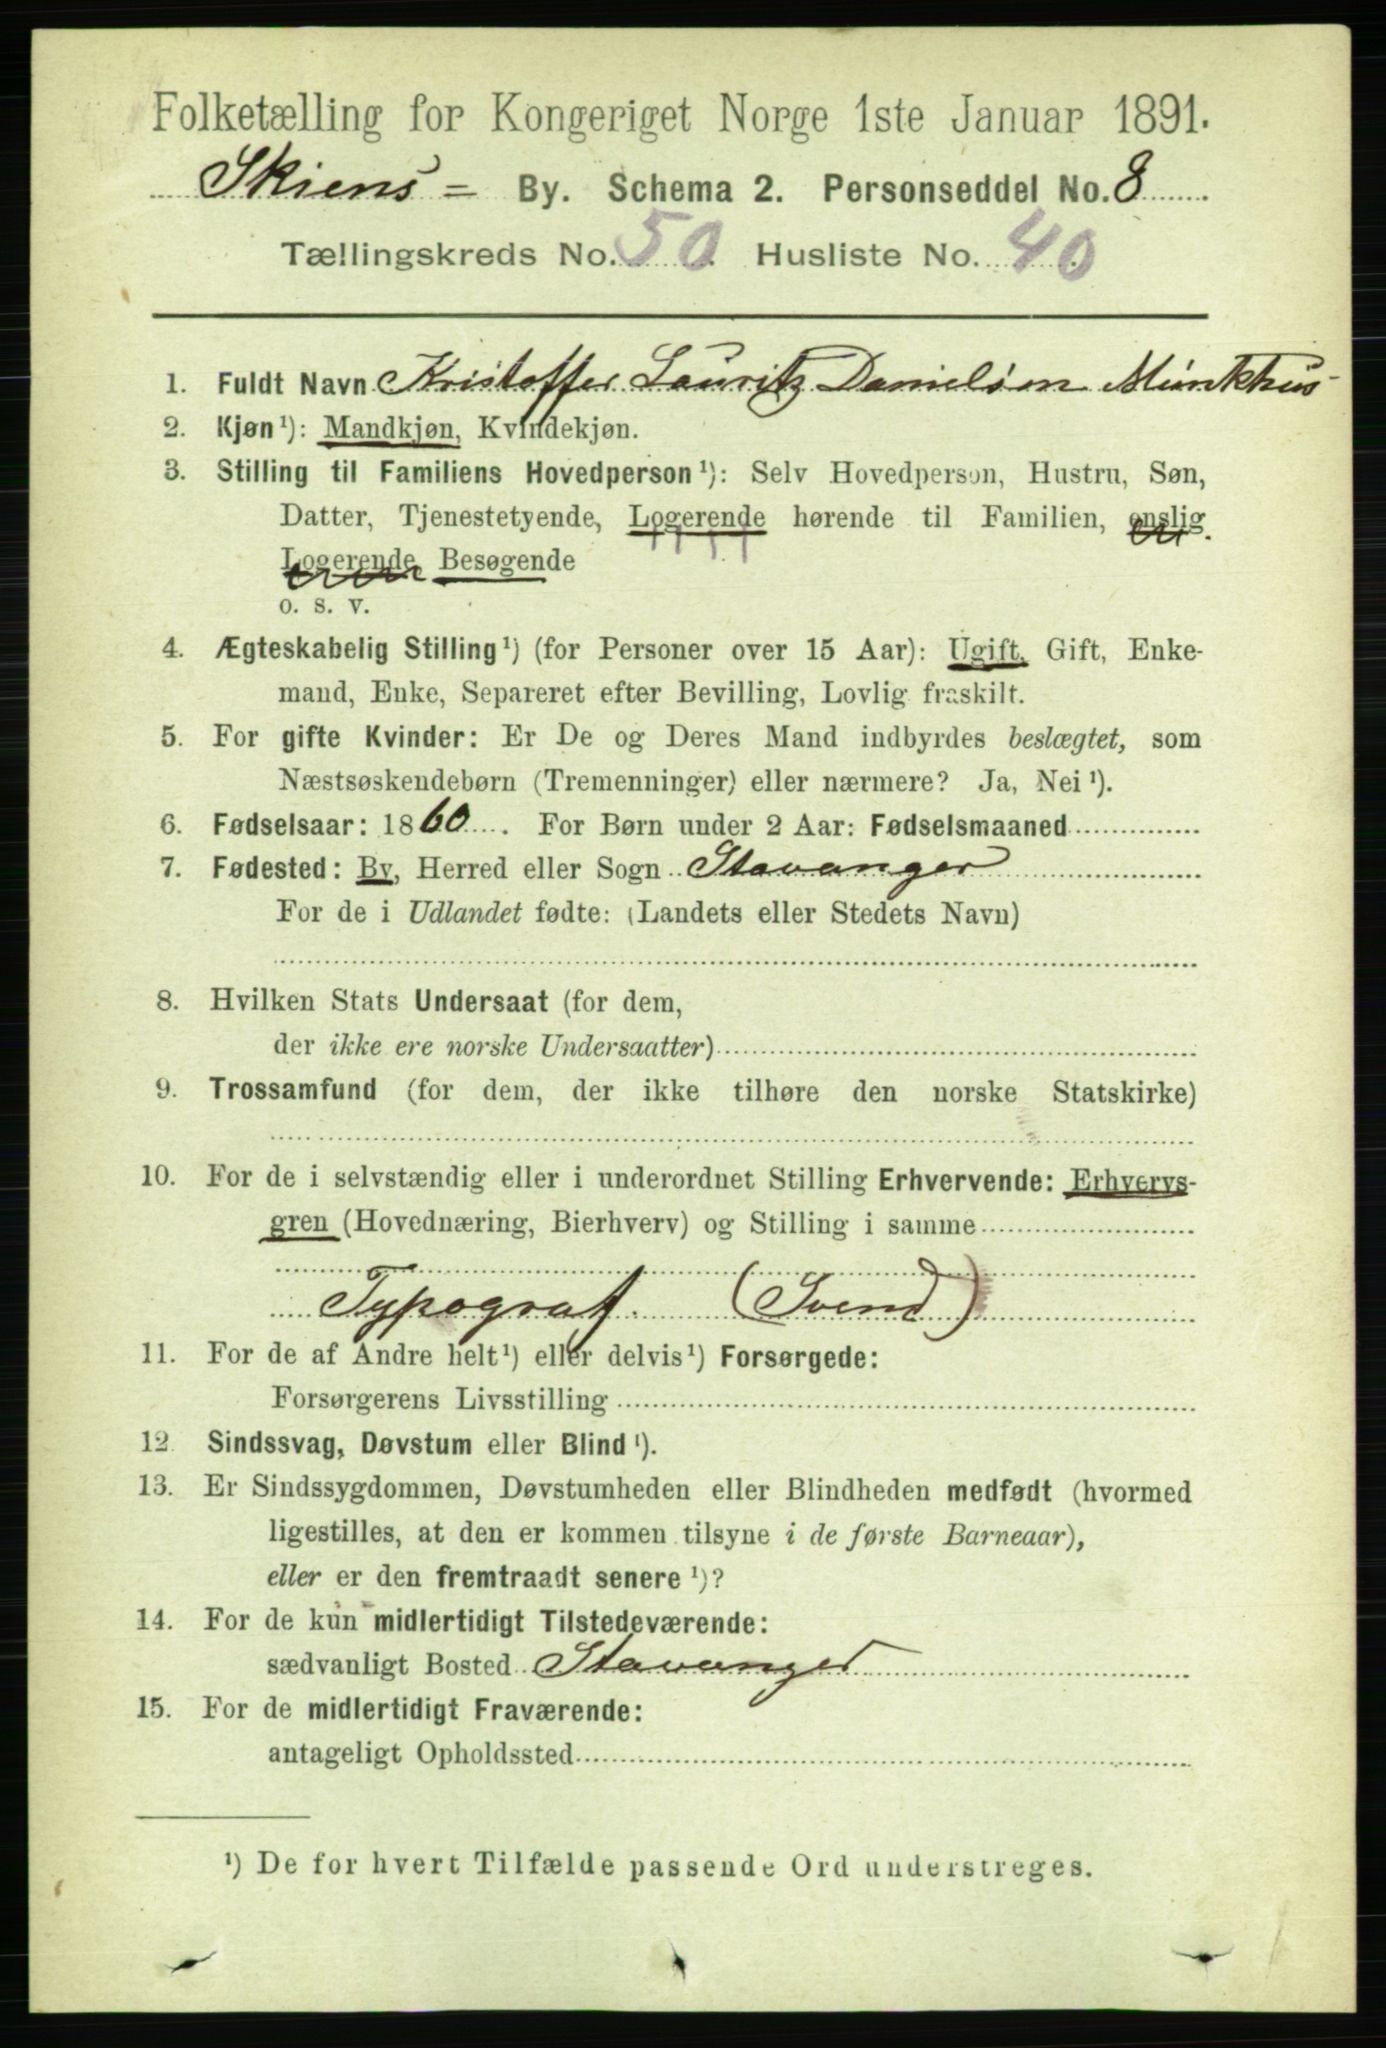 Folketælling for Kongeriget Norge 1ste Januar 1891.
Skiens = By. Schema 2. Personseddel No. 8
Tællingskreds No. 50. Husliste No. 40.
1. Fuldt Navn Kristoffer Lauritz Danielsen Munkhus
2. Kjøn¹): Mandkjøn, Kvindekjøn.
3. Stilling til Familiens Hovedperson¹): Selv Hovedperson, Hustru, Søn,
Datter, Tjenestetyende, Logerende hørende til Familien, enslig
Logerende, Besøgende
o. s. v.
4. Ægteskabelig Stilling¹) (for Personer over 15 Aar): Ugift, Gift, Enke-
mand, Enke, Separeret efter Bevilling, Lovlig fraskilt.
5. For gifte Kvinder: Er De og Deres Mand indbyrdes beslægtet, som
Næstsøskendebørn (Tremenninger) eller nærmere? Ja, Nei¹).
6. Fødselsaar: 1860. For Børn under 2 Aar: Fødselsmaaned
7. Fødested: By, Herred eller Sogn Stavanger
For de i Udlandet fødte: (Landets eller Stedets Navn)
8. Hvilken Stats Undersaat (for dem,
der ikke ere norske Undersaatter)
9. Trossamfund (for dem, der ikke tilhøre den norske Statskirke)
10. For de i selvstændig eller i underordnet Stilling Erhvervende: Erhvervs-
gren (Hovednæring, Bierhverv) og Stilling i samme
Typograf. (Svend)
11. For de af Andre helt¹) eller delvis¹) Forsørgede:
Forsørgerens Livsstilling
12 Sindssvag, Døvstum eller Blind¹).
13. Er Sindssygdommen, Døvstumheden eller Blindheden medfødt (hvormed
ligestilles, at den er kommen tilsyne i de første Barneaar),
eller er den fremtraadt senere¹)?
14. For de kun midlertidigt Tilstedeværende:
sædvanligt Bosted Stavanger
15. For de midlertidigt Fraværende:
antageligt Opholdssted
¹) De for hvert Tilfælde passende Ord understreges.